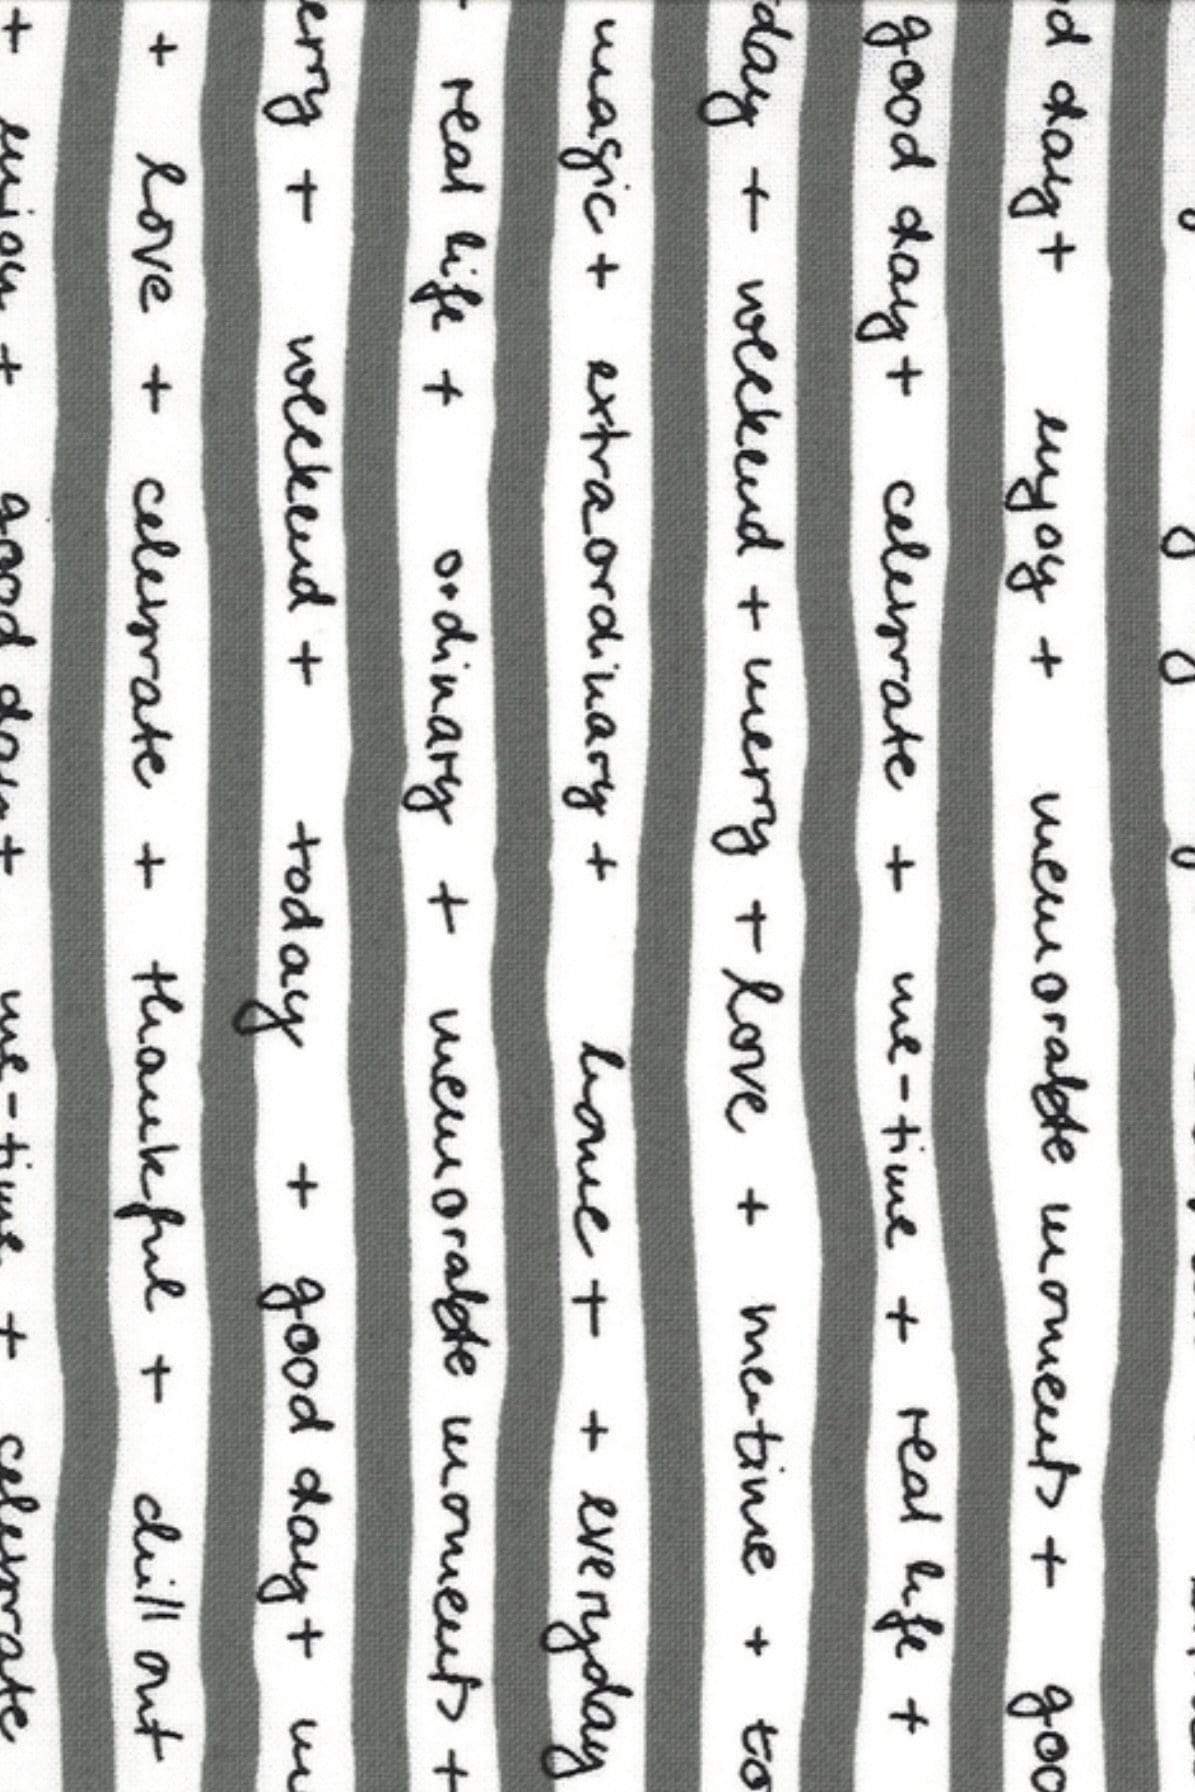 d day+ enjoy + memorable moments + goo
good day+ celebrate + me-time + real life +
day + weekend + merry + love + me-time + to
magic + extraordinary + home + + everyday
real life + ordinary + memorable moments +
erry + weekend + today + good day+ m
+ love + celebrate + thankful + chill out
+ enjoy + good day+ me-time + celebrate